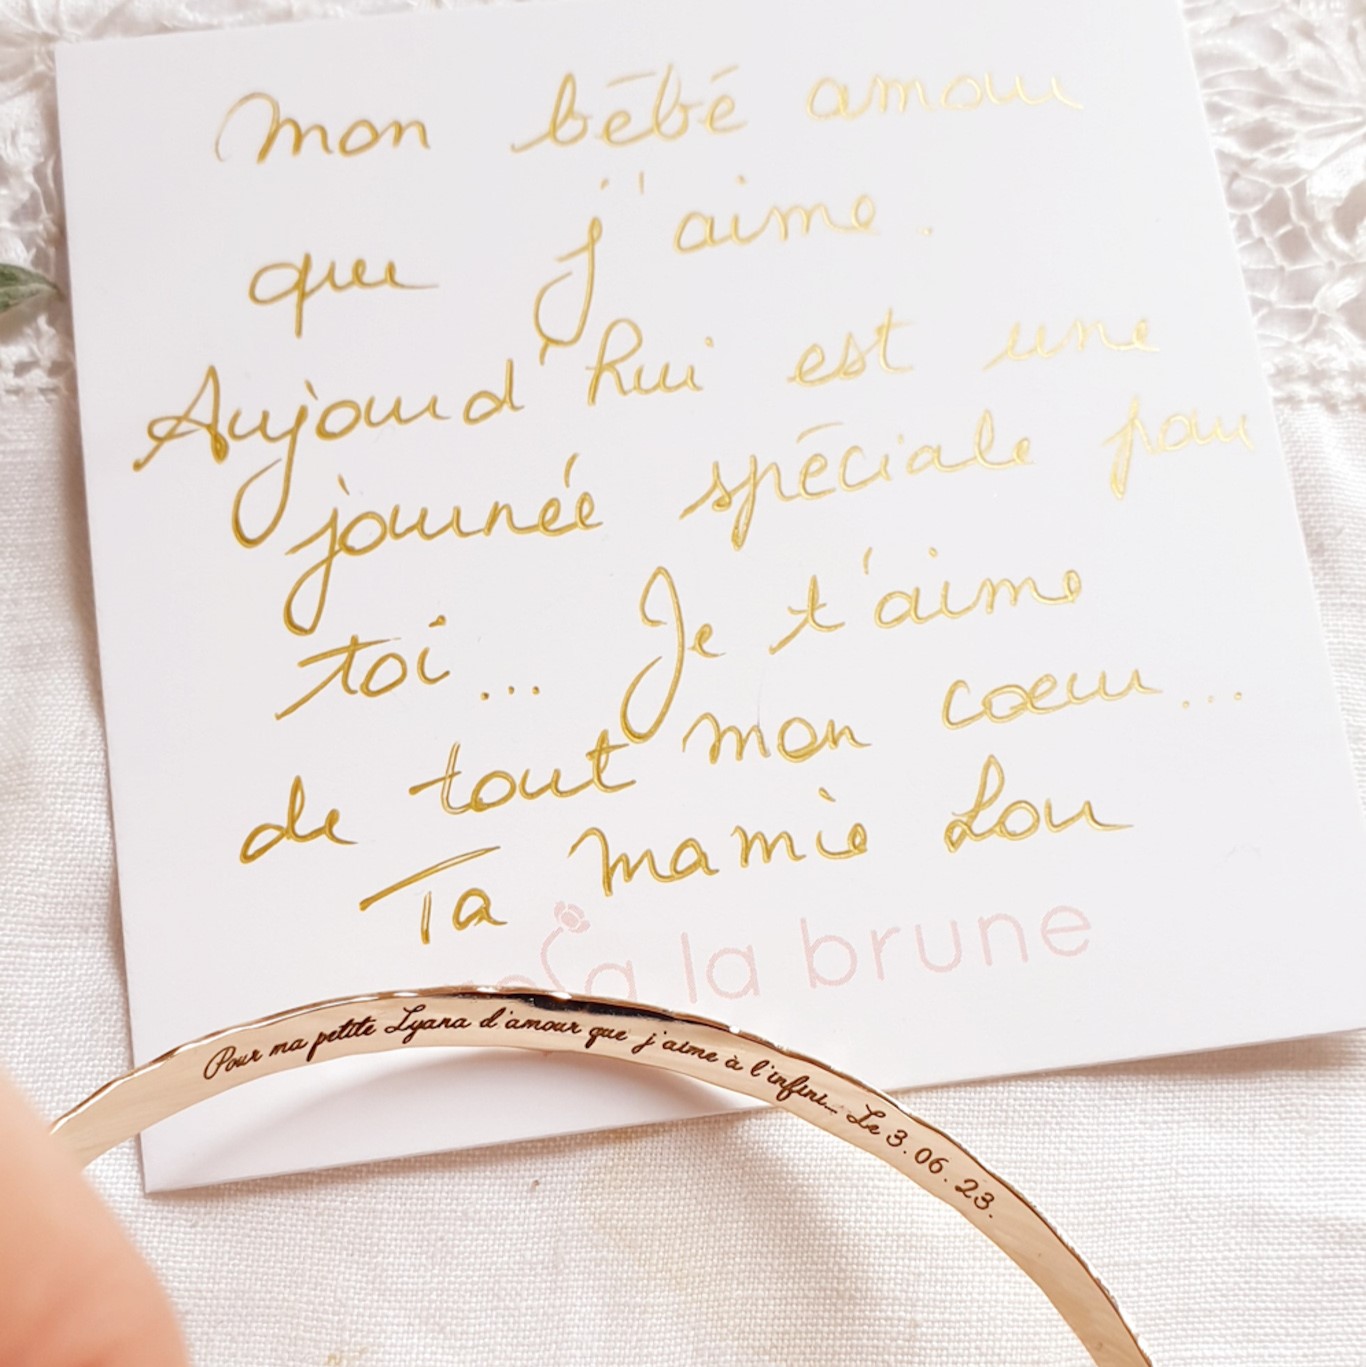 Mon bébé amour
que j'aime.
Aujourd'hui est une
journée spéciale pour
toi... Je t'aime
de tout mon coeur...
Ta mamie Lou
la brune
Pour ma petite Lyana d'amour que j'aime à l'infini... Le 3.06.23.